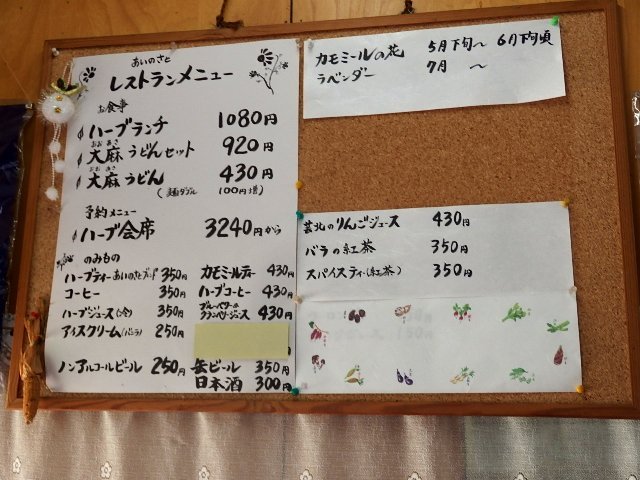 あいのさと
レストランメニュー
お食事
ハーブランチ 1080円
おお あさ
大麻うどんセット 920円
おお あさ
大麻うどん 430円
100円増)
予約メニュー
ハーブ会席 3240円から
のみもの
ハーブティーあいのさとブレンド 350円
コーヒー 350円
ハーブジュース(冷) 350円
アイスクリーム(バニラ) 250円
ノンアルコールビール 250円
カモミールティー 430円
ハーブコーヒー 430円
ブルーベリー&
クランベリージュース 430円
缶ビール 350円
日本酒 300円
カモミールの花 5月下旬〜 6月下旬頃
ラベンダー 7月 〜
芸北のりんごジュース 430円
バラの紅茶 350円
スパイスティ(紅茶) 350円